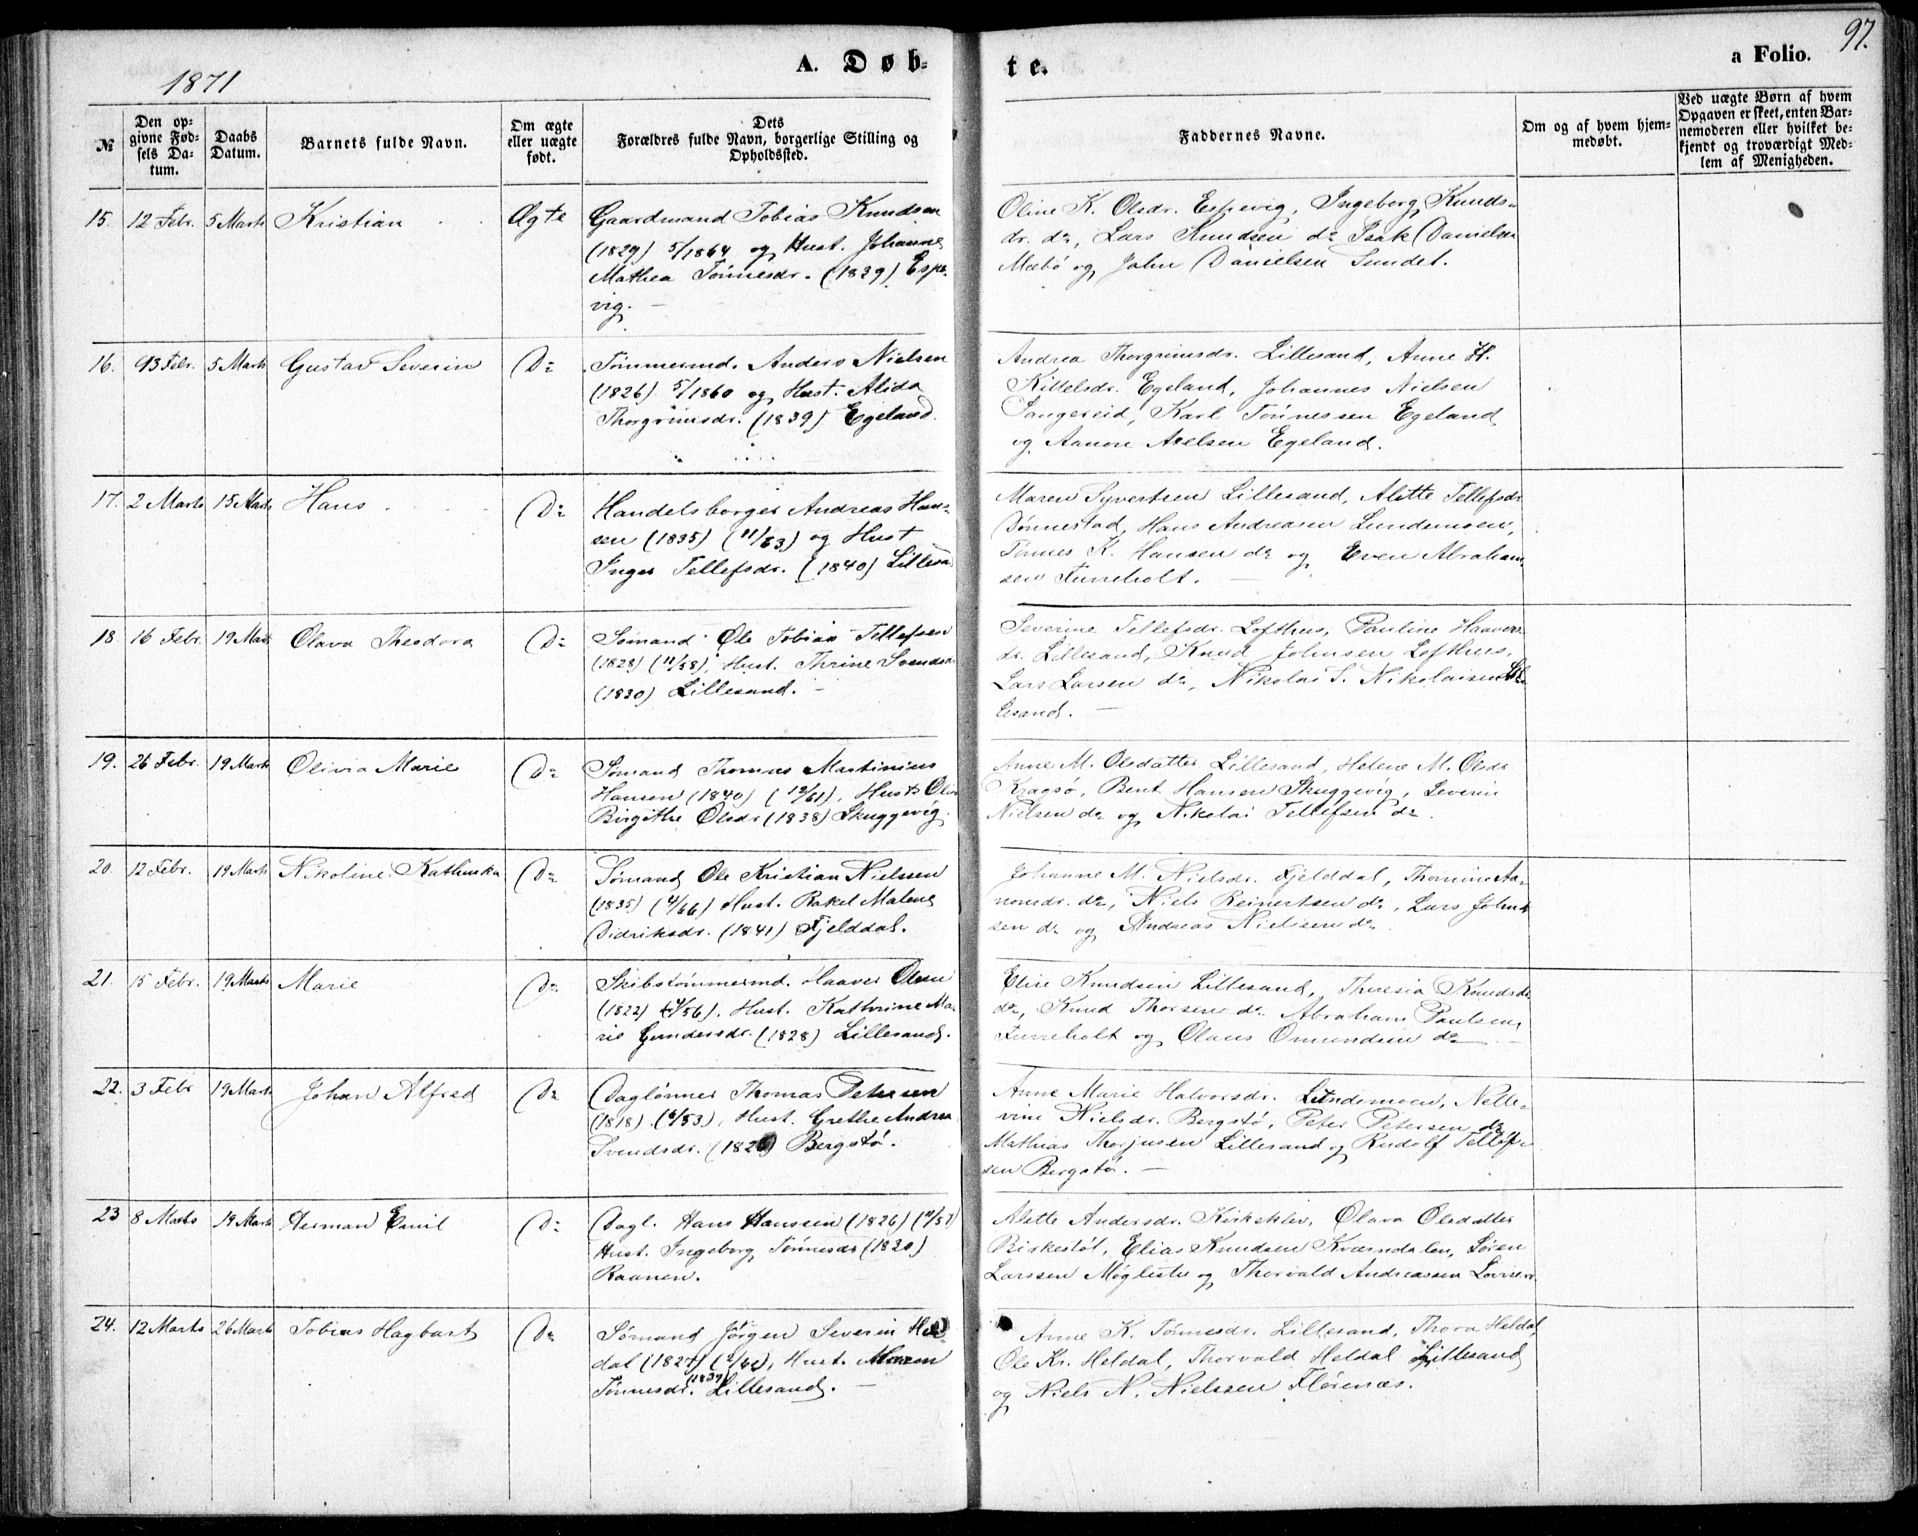 1871
A. Døb-
te.
a Folio.
97.
№
Den op-
givne Fød-
sels Da-
tum.
Daabs
Datum.
Barnets fulde Navn.
Om ægte
eller uægte
født.
Dets
Forældres fulde Navn, borgerlige Stilling og
Opholdssted.
Faddernes Navne.
Om og af hvem hjem-
medøbt.
Ved uægte Børn af hvem
Opgaven er skeet, enten Bar-
nemoderen eller hvilket be-
kjendt og troværdigt Med-
lem af Menigheden.
15. 12 Febr. 5 Marts Kristian Ægte
Gaardmand Tobias Knudsen
(1829) 5/1864 og Hust. Johanne
Mathea Tønnesdr. (1829) Espe-
vig.
Oline K. Olsdr. Espevig, Ingeborg Knuds-
dr. do, Lars Knudsen do Isak Danielsen
Mæbø og John Danielsen Sundet.
16. 13 Febr. 5 Marts Gustav Severin Do
Tømmermd. Anders Nielsen
(1826) 5/1860 og Hust. Alida
Thorgrimsdr. (1839) Egeland.
Andrea Thorgrimsdr. Lillesand, Anne H.
Kittelsdr. Egeland, Johannes Nielsen
Sangereid, Karl Tønnessen Egeland
og Aanon Axelsen Egeland.
17. 2 Marts 15 Marts Hans Do
Handelsborger Andreas Hans-
sen (1835) (11/63) og Hust
Inger Tellefsdr. (1840) Lillesand
Maren Syvertsen Lillesand, Alette Tellefsdr.
Dønnestad, Hans Andreasen Lundemoen,
Tønnes K. Hansen do og Even Abraham-
sen Furreholt.
18 16 Febr. 19 Marts Olava Theodora Do
Sømand Ole Tobias Tellefsen
(1828) (11/58), Hust. Thrine Svendsdr.
(1830) Lillesand.
Severine Tellefsdr. Lofthus, Pauline Haavers-
dr. Lillesand, Knud Johnsen Lofthus,
Lars Larsen do, Nikolai S. Nikolaisen Lil-
lesand.
19. 26 Febr. 19 Marts Olivia Marie Do
Sømand Thomas Martinius
Hansen (1840) (12/61), Hust.
Birgithe Olsdr (1838) Skuggevig.
Anne M. Olsdatter Lillesand, Helene M. Olsdr
Kragsø, Bent Hansen Skuggevig, Severin
Nielsen do og Nikolai Tellefsen do.
20. 12 Febr. 19 Marts Nikoline Kathinka Do
Sømand Ole Kristian Nielsen
(1835) (4/66) Hust. Rakel Malene
Didriksdr. (1841) Fjelddal.
Johanne M. Nielsdr. Fjelddal, Thomine Aa-
nonsdr. do, Niels Reinertsen do, Lars John-
sen do og Andreas Nielsen do
21. 15 Febr. 19 Marts Marie Do
Skibstømmermd. Haaver Olsen
(1822) (4/56), Hust. Kathrine Ma-
rie Gundersdr. (1828) Lillesand.
Elise Knudsen Lillesand, Theresia Knudsdr.
do, Knud Thorsen do Abraham Paulsen
Furreholt og Olaus Omundsen do
22. 3 Febr 19 Marts Johan Alfred Do
Daglønner Thomas Petersen
(1818) (6/53), Hust. Grethe Andrea
Svendsdr. Bergstø.
Anne Marie Halvorsdr. Lundemoen, Nelle-
vine Nielsdr. Bergstø, Peter Petersen do
Mathias Thorjusen Lillesand og Rudolf Tellef-
sen Bergstø.
23 8 Marts 19 Marts Herman Emil Do
Dagl. Hans Hanssen (1826) (11/57)
Hust. Ingeborg Tønnesdr (1830)
Raanen.
Alette Andersdr. Kirkeklev, Olava Olsdatter
Birkestøl, Elias Knudsen Kværndalen, Søren
Larssen Møglestu og Thorvald Andreassen
24. 12 Marts 26 Marts Tobias Hagbart Do
Sømand Jørgen Severin Hel-
dal (1827) (2/62), Hust. Maren
Tønnesdr. (1839) Lillesand.
Anne K. Tønnesdr. Lillesand, Thora Heldal,
Ole Kr. Heldal, Thorvald Heldal Lillesand
og Niels N. Nielssen Flørenæs.